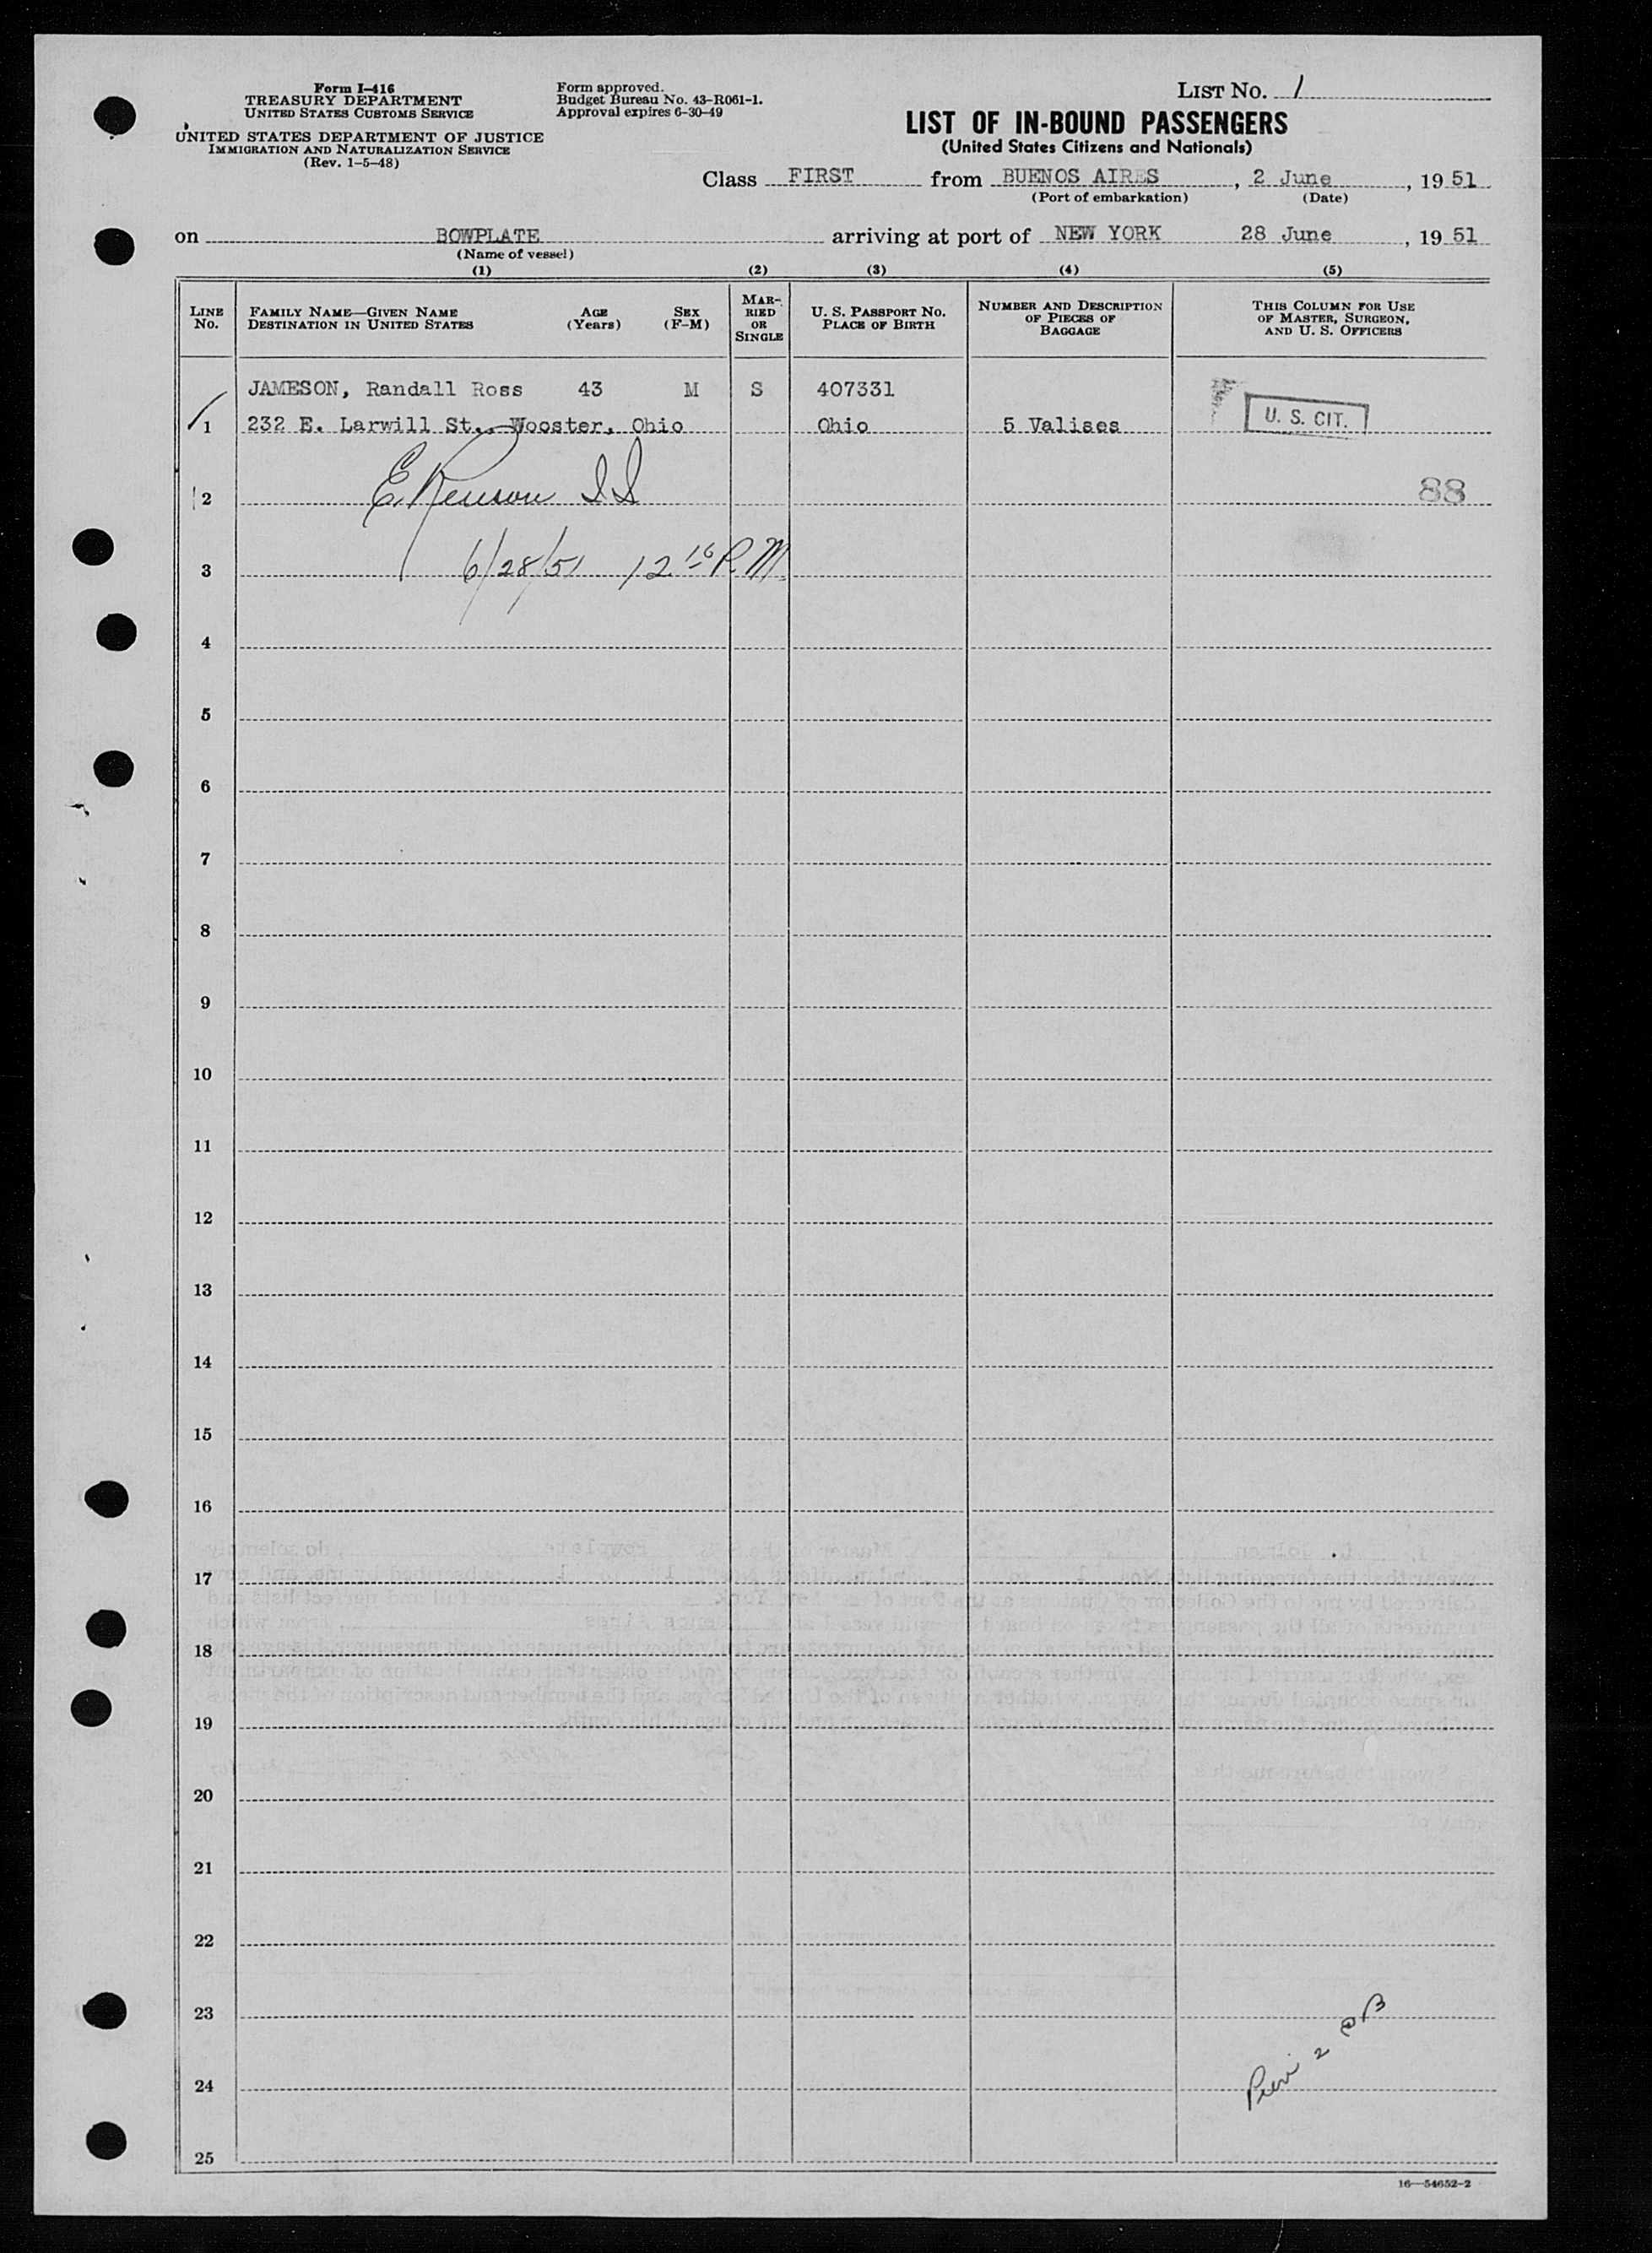 Form I-416
TREASURY DEPARTMENT
UNITED STATES CUSTOMS SERVICE
UNITED STATES DEPARTMENT OF JUSTICE
IMMIGRATION AND NATURALIZATION SERVICE
(Rev. 1-5-48)
Form approved.
Budget Bureau No. 43-R061-1.
Approval expires 6-30-49
LIST NO. 1
LIST OF IN-BOUND PASSENGERS
(United States Citizens and Nationals)
Class FIRST from BUENOS AIRES, 2 June, 1951
(Port of embarkation) (Date)
on BOWPLATE arriving at port of NEW YORK 28 June, 1951
(Name of vessel)
(1) (2) (3) (4) (5)
LINE No.
FAMILY NAME—GIVEN NAME
DESTINATION IN UNITED STATES
AGE (Years)
SEX (F-M)
MARRIED OR SINGLE
U. S. PASSPORT NO.
PLACE OF BIRTH
NUMBER AND DESCRIPTION OF PIECES OF BAGGAGE
THIS COLUMN FOR USE OF MASTER, SURGEON, AND U. S. OFFICERS
JAMESON, Randall Ross 43 M S 407331
1 232 E. Larwill St., Wooster, Ohio Ohio 5 Valises U. S. CIT.
2 88
3 6/28/51 12 16 P.M
4
5
6
7
8
9
10
11
12
13
14
15
16
17
18
19
20
21
22
23
24
25
16—54652-2